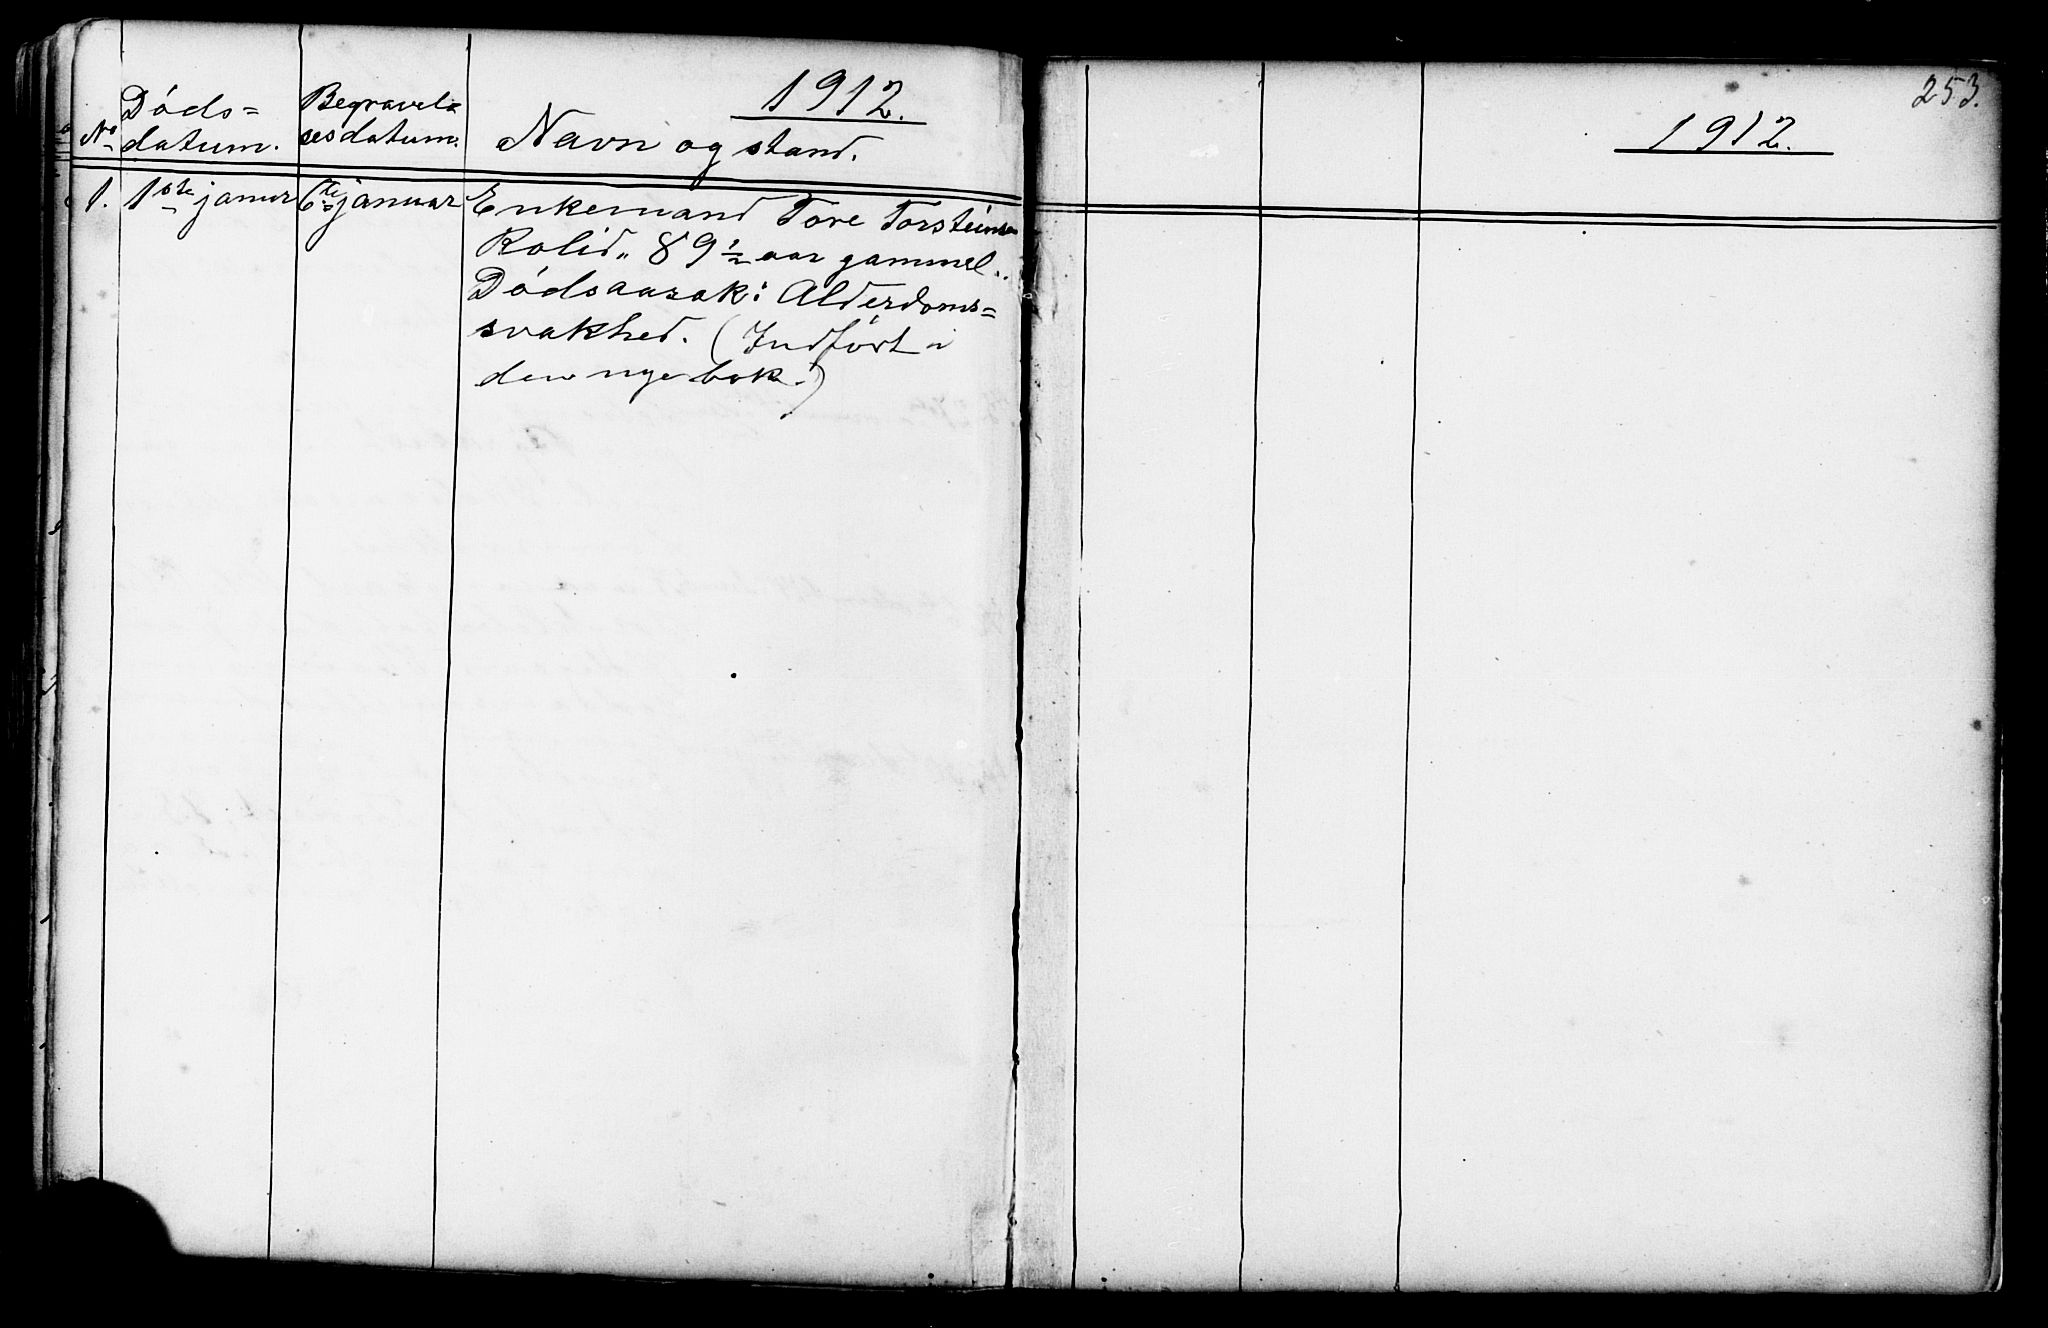 1912.
No Døds= Begravel=
datum. sesdatum. Navn og stand.
1. 1ste januar 6te januar Enkemand Tore Torsteinsen
Rolid„ 89 1/2 aar gammel..
Dødsaarsak: Alderdoms=
svakhed. (Indført i
den nye bok.)
253.
1912.